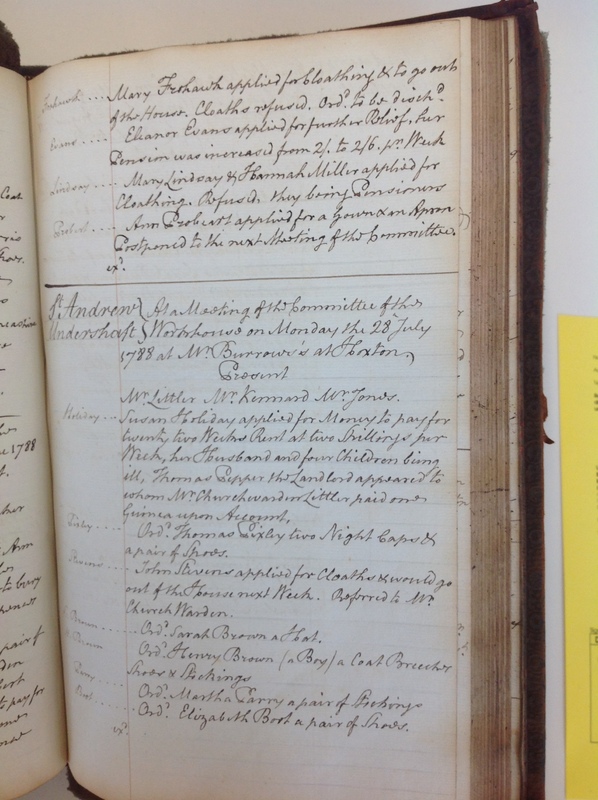 Frohawk .... Mary Frohawk applied for Cloathing & to go out
of the House. Cloaths refused. Ord.d to be disch.d
Evans .... Eleanor Evans applied for further Relief, her
Pension was increased from 2/. to 2/6. pr. Week
Lindsay .... Mary Lindsay & Hannah Miller applied for
Cloathing. Refused. they being Pensioners
Probert .... Ann Probeart applied for a Gown & an Apron
Postponed to the next Meeting of the Committee.
ex.d
St. Andrew } At a Meeting of the Committee of the
Undershaft } Workhouse on Monday the 28 July
1788 at Mr. Burrows's at Hoxton,
Present
Mr. Littler Mr. Kennard Mr. Jones.
Holiday ... Susan Holiday applied for Money to pay for
twenty two Weeks Rent at two Shillings per
Week, her Husband and four Children being
ill, Thomas Pepper the Landlord appeared to
whom Mr. Churchwarden Littler paid one
Guinea upon Account.
Pixley .... Ord.d Thomas Pixley two Night Caps &
a pair of Shoes.
Stevens .... John Stevens applied for Cloaths & would go
out of the House next Week. Referred to Mr.
Church Warden.
S Brown .... Ord.d Sarah Brown a Hat.
H Brown .... Ord.d Henry Brown (a Boy) a Coat Breeches
Shoes & Stockings
Parry .... Ord.d Martha Parry a pair of Stockings
Boot .... Ord.d Elizabeth Boot a pair of Shoes.
ex.d
1788